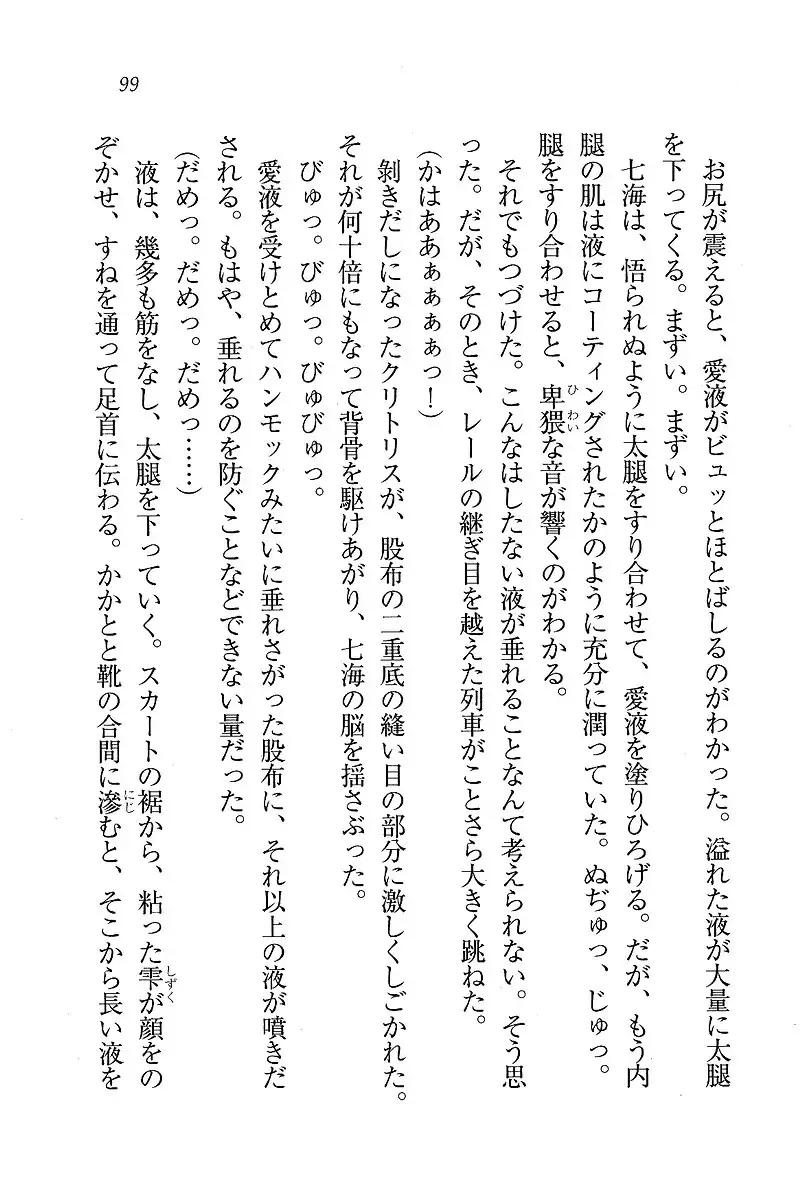 99
お尻が震えると、愛液がビュッとほとばしるのがわかった。溢れた液が大量に太腿
を下ってくる。まずい。まずい。
七海は、悟られぬように太腿をすり合わせて、愛液を塗りひろげる。だが、もう内
腿の肌は液にコーティングされたかのように充分に潤っていた。ぬぢゅっ、じゅっ。
腿をすり合わせると、卑猥な音が響くのがわかる。
ひわい
それでもつづけた。こんなはしたない液が垂れることなんて考えられない。そう思
った。だが、そのとき、レールの継ぎ目を越えた列車がことさら大きく跳ねた。
（かはああぁぁぁぁっ！）
剝きだしになったクリトリスが、股布の二重底の縫い目の部分に激しくしごかれた。
それが何十倍にもなって背骨を駆けあがり、七海の脳を揺さぶった。
びゅっ。びゅっ。びゅびゅっ。
愛液を受けとめてハンモックみたいに垂れさがった股布に、それ以上の液が噴きだ
される。もはや、垂れるのを防ぐことなどできない量だった。
（だめっ。だめっ。だめっ……）
液は、幾多も筋をなし、太腿を下っていく。スカートの裾から、粘った雫が顔をの
しずく
ぞかせ、すねを通って足首に伝わる。かかとと靴の合間に滲むと、そこから長い液を
にじ